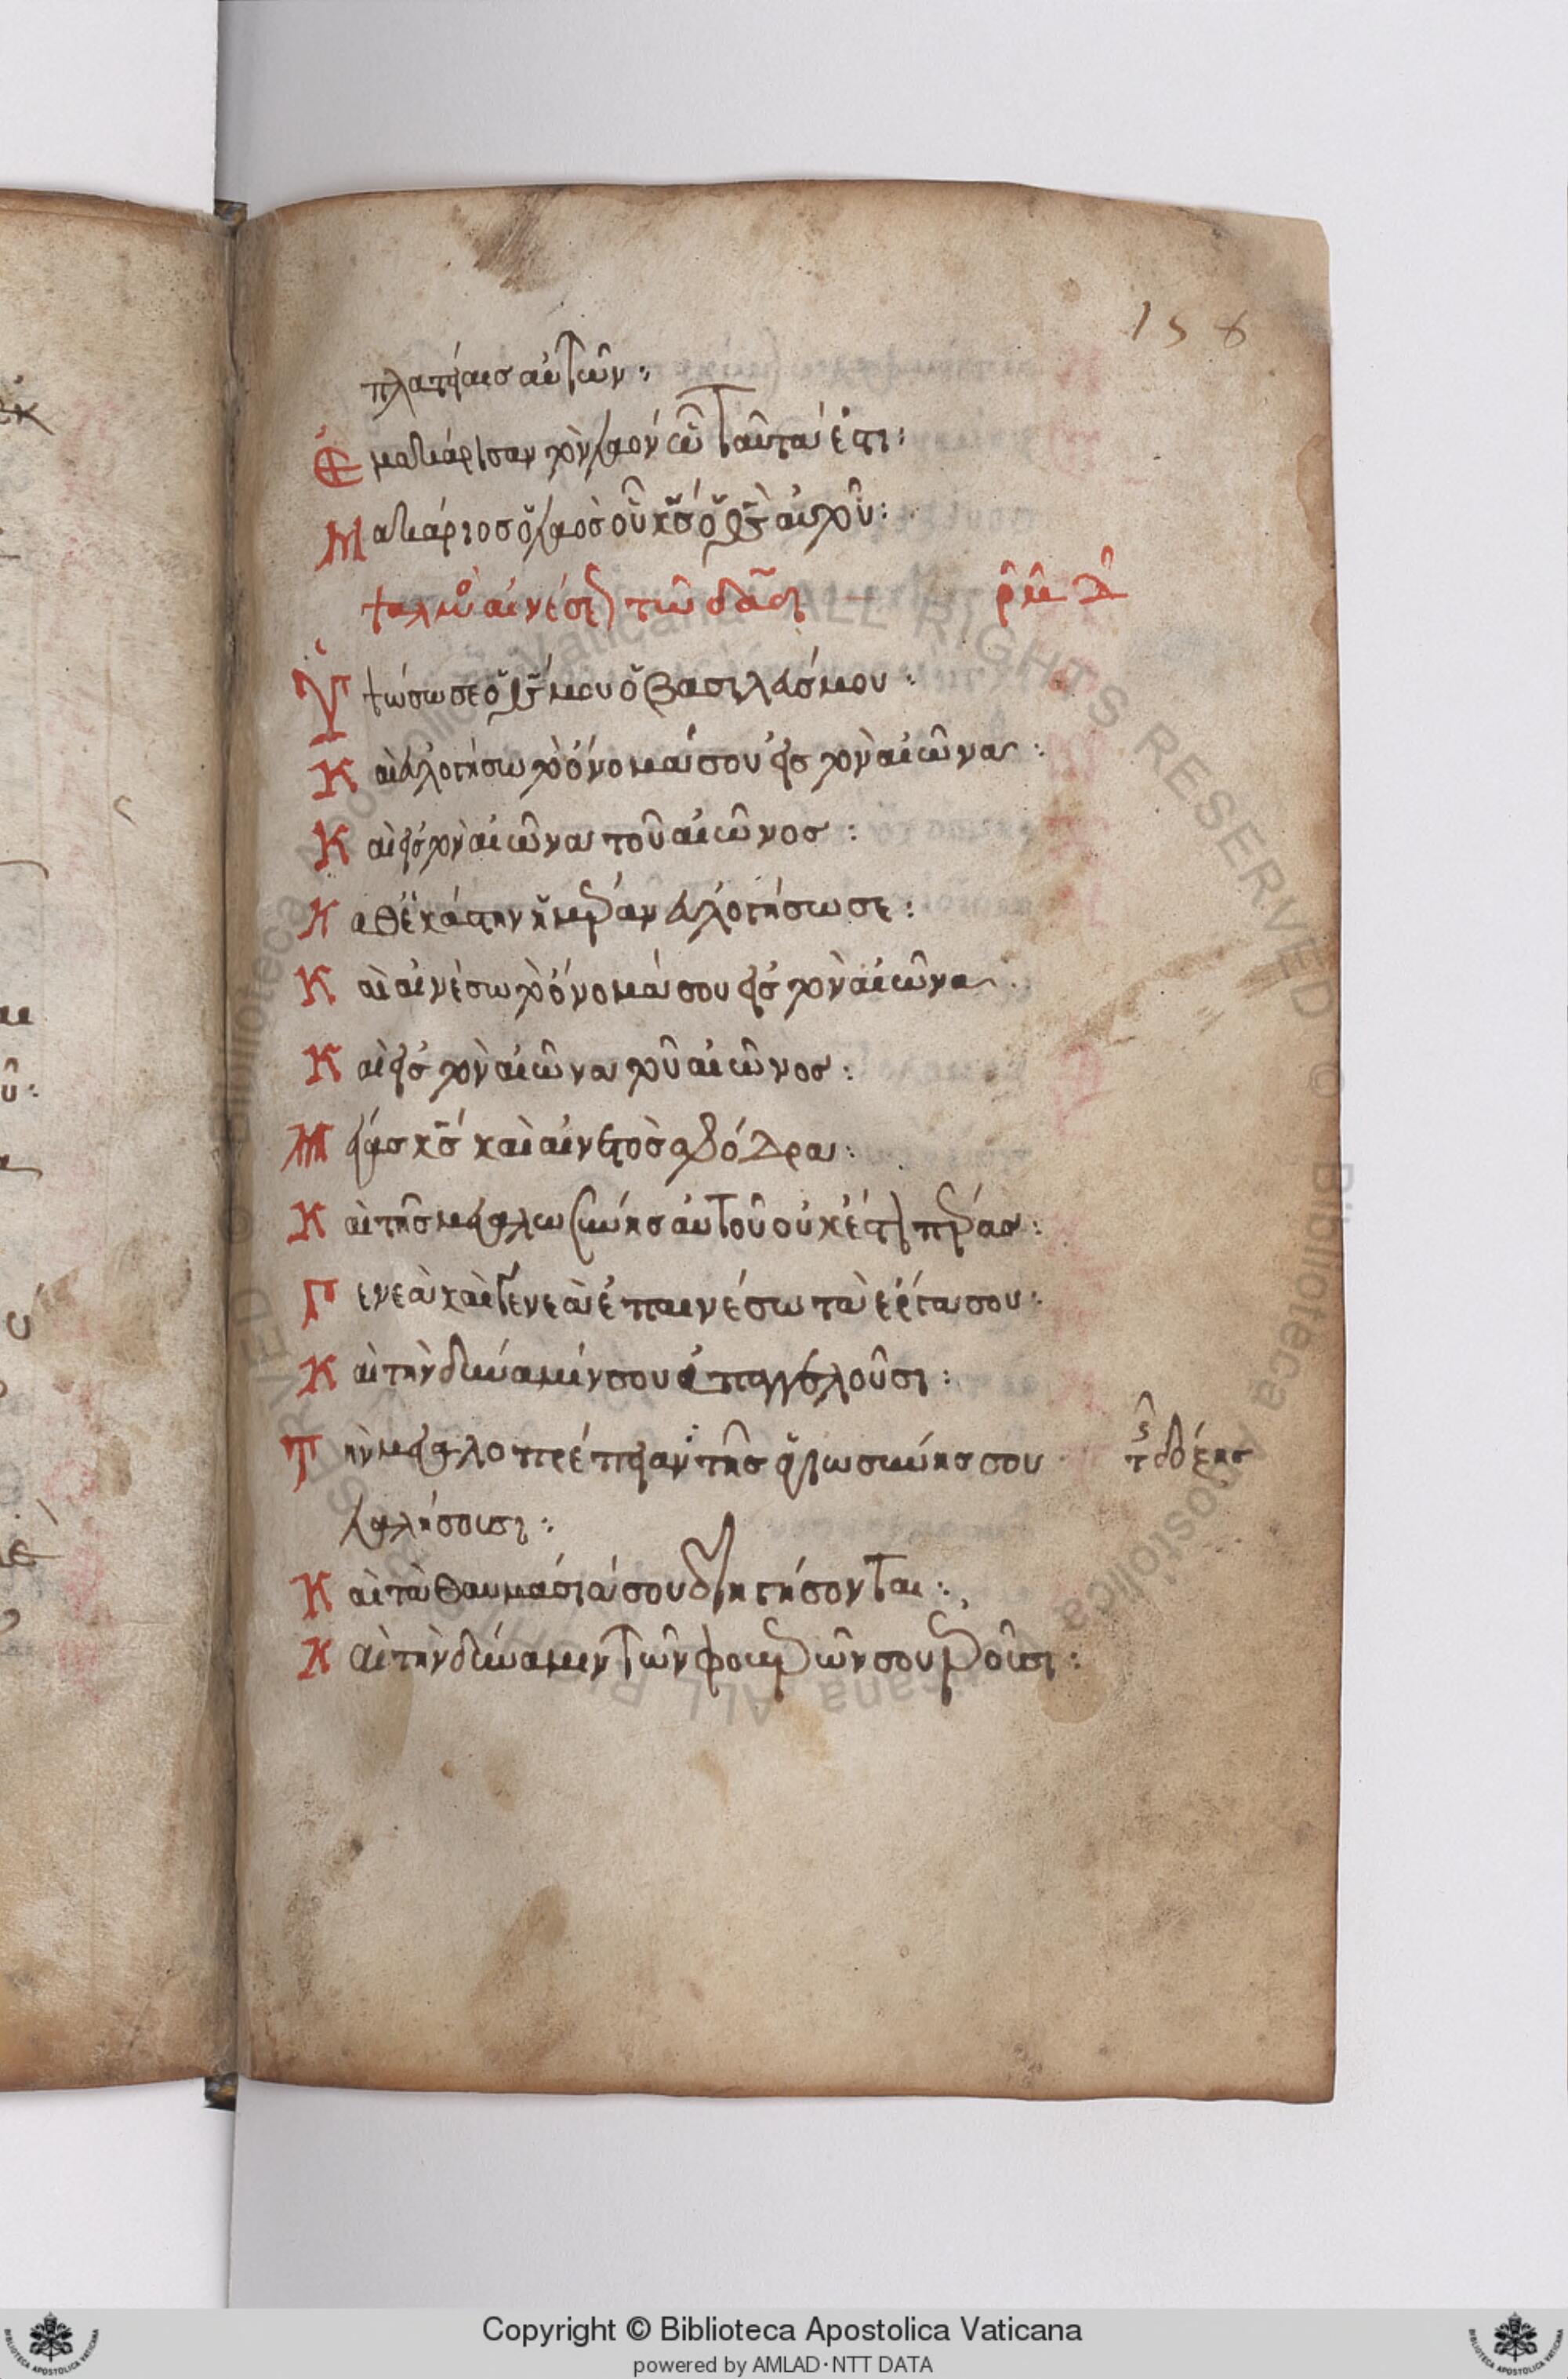 158
πλατείαις αὐτῶν:
Ἐμακάρισαν τὸν λαὸν ὧ ταῦτά ἐστι:
Μακάριος ὁ λαὸς οὗ κς ὁ θς αὐτοῦ:
ψαλμὸ αἰνέσε τῶ δαδ ρμδ
Ὑψώσω σε ὁ θς μου ὁ βασιλεύς μου:
Καὶ εὐλογήσω τὸ ὄνομά σου εἰς τὸν αἰῶνα:
Καὶ εἰς τὸν αἰῶνα τοῦ αἰῶνος:
Καθ ἑκάστην ἡμέραν εὐλογήσω σε:
Καὶ αἰνέσω τὸ ὄνομά σου εἰς τὸν αἰῶνα
Καὶ εἰς τὸν αἰῶνα τοῦ αἰῶνος:
Μέγας κς καὶ αἰνετὸς σφόδρα:
Καὶ τῆς μεγαλωσύνης αὐτοῦ οὐκ ἔστι πέρας:
Γενεὰ καὶ γενεὰ ἐπαινέσω τὰ ἔργα σου:
Καὶ τὴν δύναμίν σου ἀπαγγελοῦσι:
Τὴν μεγαλοπρέπειαν τῆς ἁγιωσύνης σου
τ δόξης
λαλήσουσι:
Καὶ τὰ θαυμάσιά σου διηγήσονται:
Καὶ τὴν δύναμιν τῶν φοβερῶν σου ἐροῦσι:
Biblioteca Apostolica Vaticana ALL RIGHTS RESERVED ©
Copyright © Biblioteca Apostolica Vaticana
powered by AMLAD·NTT DATA